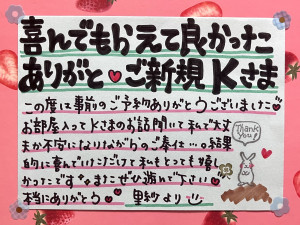 喜んでもらえて良かった
ありがと♥ご新規Kさま
この度は事前のご予約ありがとうございました♡
お部屋入ってKさまのお話聞いて私で大丈
夫か不安になりながらのご奉仕…。結果
的に喜んでいただけて私もとっても嬉し
かったです またぜひ遊んで下さい♡
本当にありがとう♥ 里紗より
Thank you!